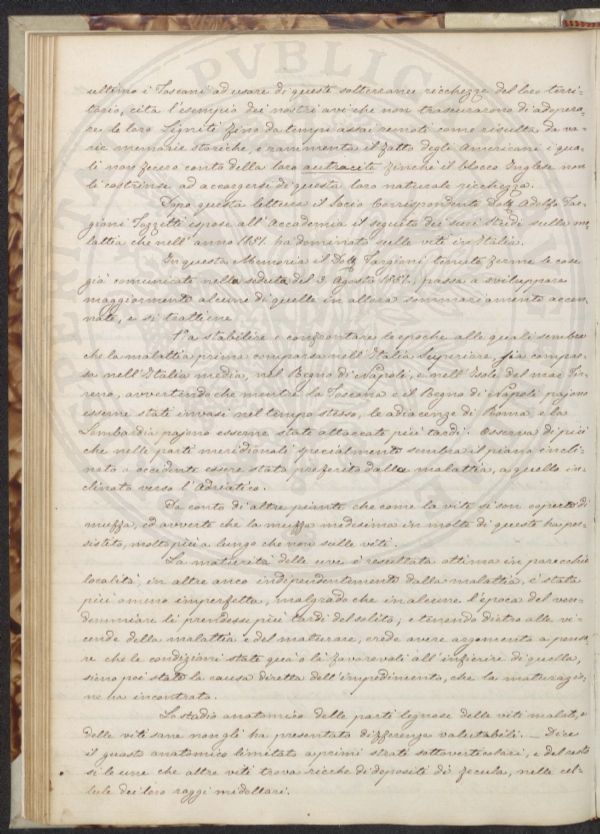 ultimo i Toscani ad usare di queste sotterranee ricchezze del loro terri-
torio, cita l'esempio dei nostri avi che non trascurarono di adopera-
re le loro Ligniti fino da tempi assai remoti come risulta da va-
rie memorie storiche, e rammenta il fatto degli Americani i qua-
li non fecero conto della loro antracite finchè il blocco Inglese non
le costrinse ad accorgersi di questa loro naturale ricchezza.
Dopo questa lettura il Socio Corrispondente Dott. Adolfo Tar-
gioni Tozzetti espose all'Accademia il seguito dei suoi studi sulla ma
lattia che nell'anno 1851. ha dominato sulle viti in Italia.
In questa Memoria il Dott. Targioni tenute ferme le cose
già comunicate nella seduta del 3 Agosto 1851. passa a sviluppare
maggiormente alcune di quelle in allora sommariamente accen-
nate, e si trattiene
1.° a stabilire e confrontare le epoche alle quali sembra
che la malattia prima comparsa nell'Italia Superiore, sia compar-
sa nell'Italia media, nel Regno di Napoli, e nell'Isole del mar Tir-
reno, avvertendo che mentre la Toscana e il Regno di Napoli pajono
esserne stati invasi nel tempo stesso, le adiacenze di Roma e la
Lombardia pajono esserne state attaccate più tardi. Osserva di più
che nelle parti meridionali specialmente sembra il piano incli-
nato a occidente essere stato preferito dalla malattia, a quello in-
clinato verso l'Adriatico.
Fa conto di altre piante che come la vite si son coperte di
muffa, ed avverte che la muffa medesima in molte di queste ha per-
sistito, molto più a lungo che non sulle viti.
La maturità delle uve è resultata ottima in parecchie
località, in altre anco indipendentemente dalla malattia, è stata
più o meno imperfetta, malgrado che in alcune l'epoca del ven-
demmiare si prendesse più tardi del solito; e tenendo dietro alle vi-
cende della malattia e del maturare, crede avere argomento a pensa
re che le condizioni state quà o là favorevoli all'infierire di quella,
sieno poi state la causa diretta dell'impedimento, che la maturazio-
ne ha incontrato.
Lo studio anatomico delle parti legnose delle viti malate, e
delle viti sane non gli ha presentata differenza valutabili. — Dice
il guasto anatomico limitato a primi strati sottoverticolari, e del resto
sì le une che altre viti trova ricche di depositi di fecula, nelle cel-
lule dei loro raggi midollari.